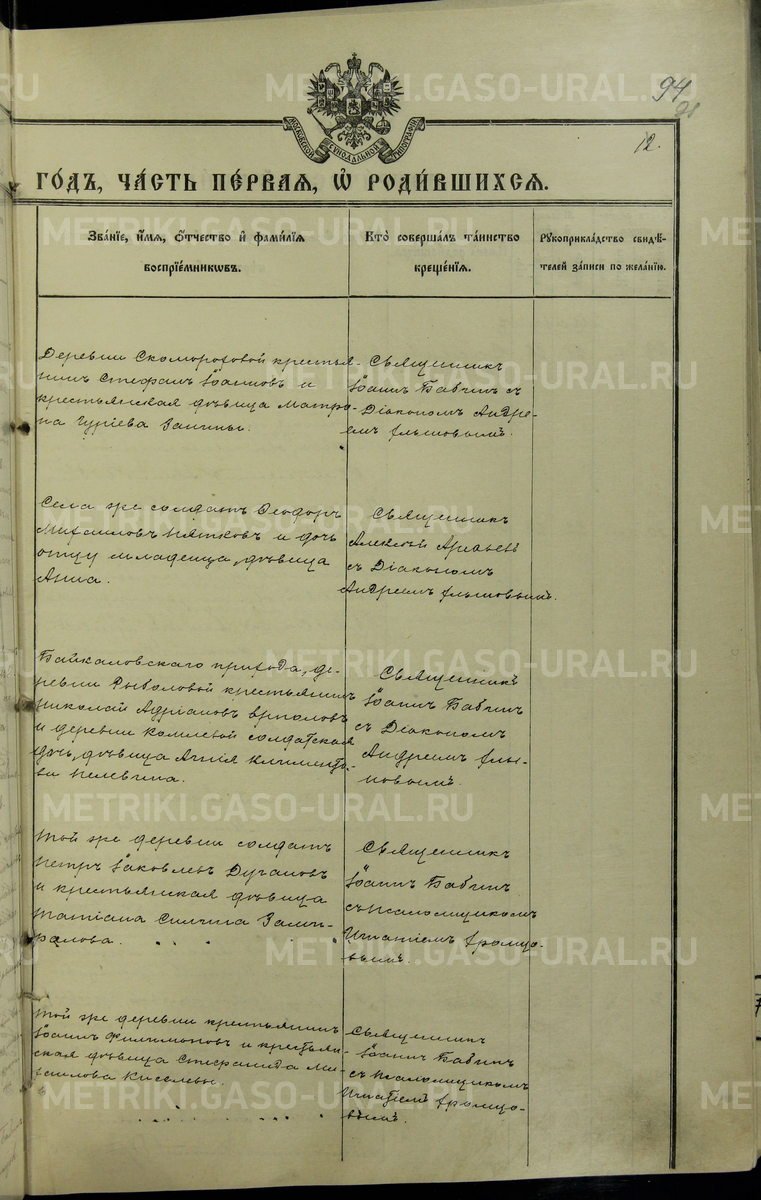 METRIKI.GASO-URAL.RU
94
98
12.
МОСКОВСКОЙ СѴНОДАЛЬНОЙ ТИПОГРАФІИ
ГО́ДЪ, ЧА́СТЬ ПЕ́РВАЯ, Ѽ РОДИ́ВШИХСЯ.
ЗВА́НІЕ, И҆́МЯ, Ѻ҆́ТЧЕСТВО И҆ ФАМИ́ЛІЯ
ВОСПРІЕ́МНИКѠВЪ.
КТО̀ СОВЕРША́ЛЪ ТА́ИНСТВО
КРЕЩЕ́НІЯ.
РУКОПРИКЛА́ДСТВО СВИДѢ́-
ТЕЛЕЙ ЗА́ПИСИ ПО ЖЕЛА́НІЮ.
Деревни Скомороховой крестья-
нинъ Стефанъ Іоанновъ и
крестьянская дѣвица Матро-
на Гуріева
Священникъ
Іоаннъ Бабинъ съ
Діакономъ Андре-
емъ
Села же солдатъ Ѳеодоръ
Михаиловъ Пятковъ и дочь
отцу младенца, дѣвица
Анна.
Священникъ
Алексѣй
съ Діакономъ
Андреемъ
Байкаловскаго прихода, де-
ревни крестьянинъ
Николай Адріановъ
и деревни солдатская
дочь, дѣвица
Священникъ
Іоаннъ Бабинъ
съ Діакономъ
Андреемъ
новымъ.
Той же деревни солдатъ
Петръ Іаковлевъ Дугановъ
и крестьянская дѣвица
Татіана Силина Зами-
ралова.
Священникъ
Іоаннъ Бабинъ
съ Псаломщикомъ
Игнатіемъ
вымъ.
Той же деревни крестьянинъ
Іоаннъ Филимоновъ и крестьян-
ская дѣвица Стефанида Ми-
хаилова
Священникъ
Іоаннъ Бабинъ
съ Псаломщикомъ
Игнатіемъ
вымъ.